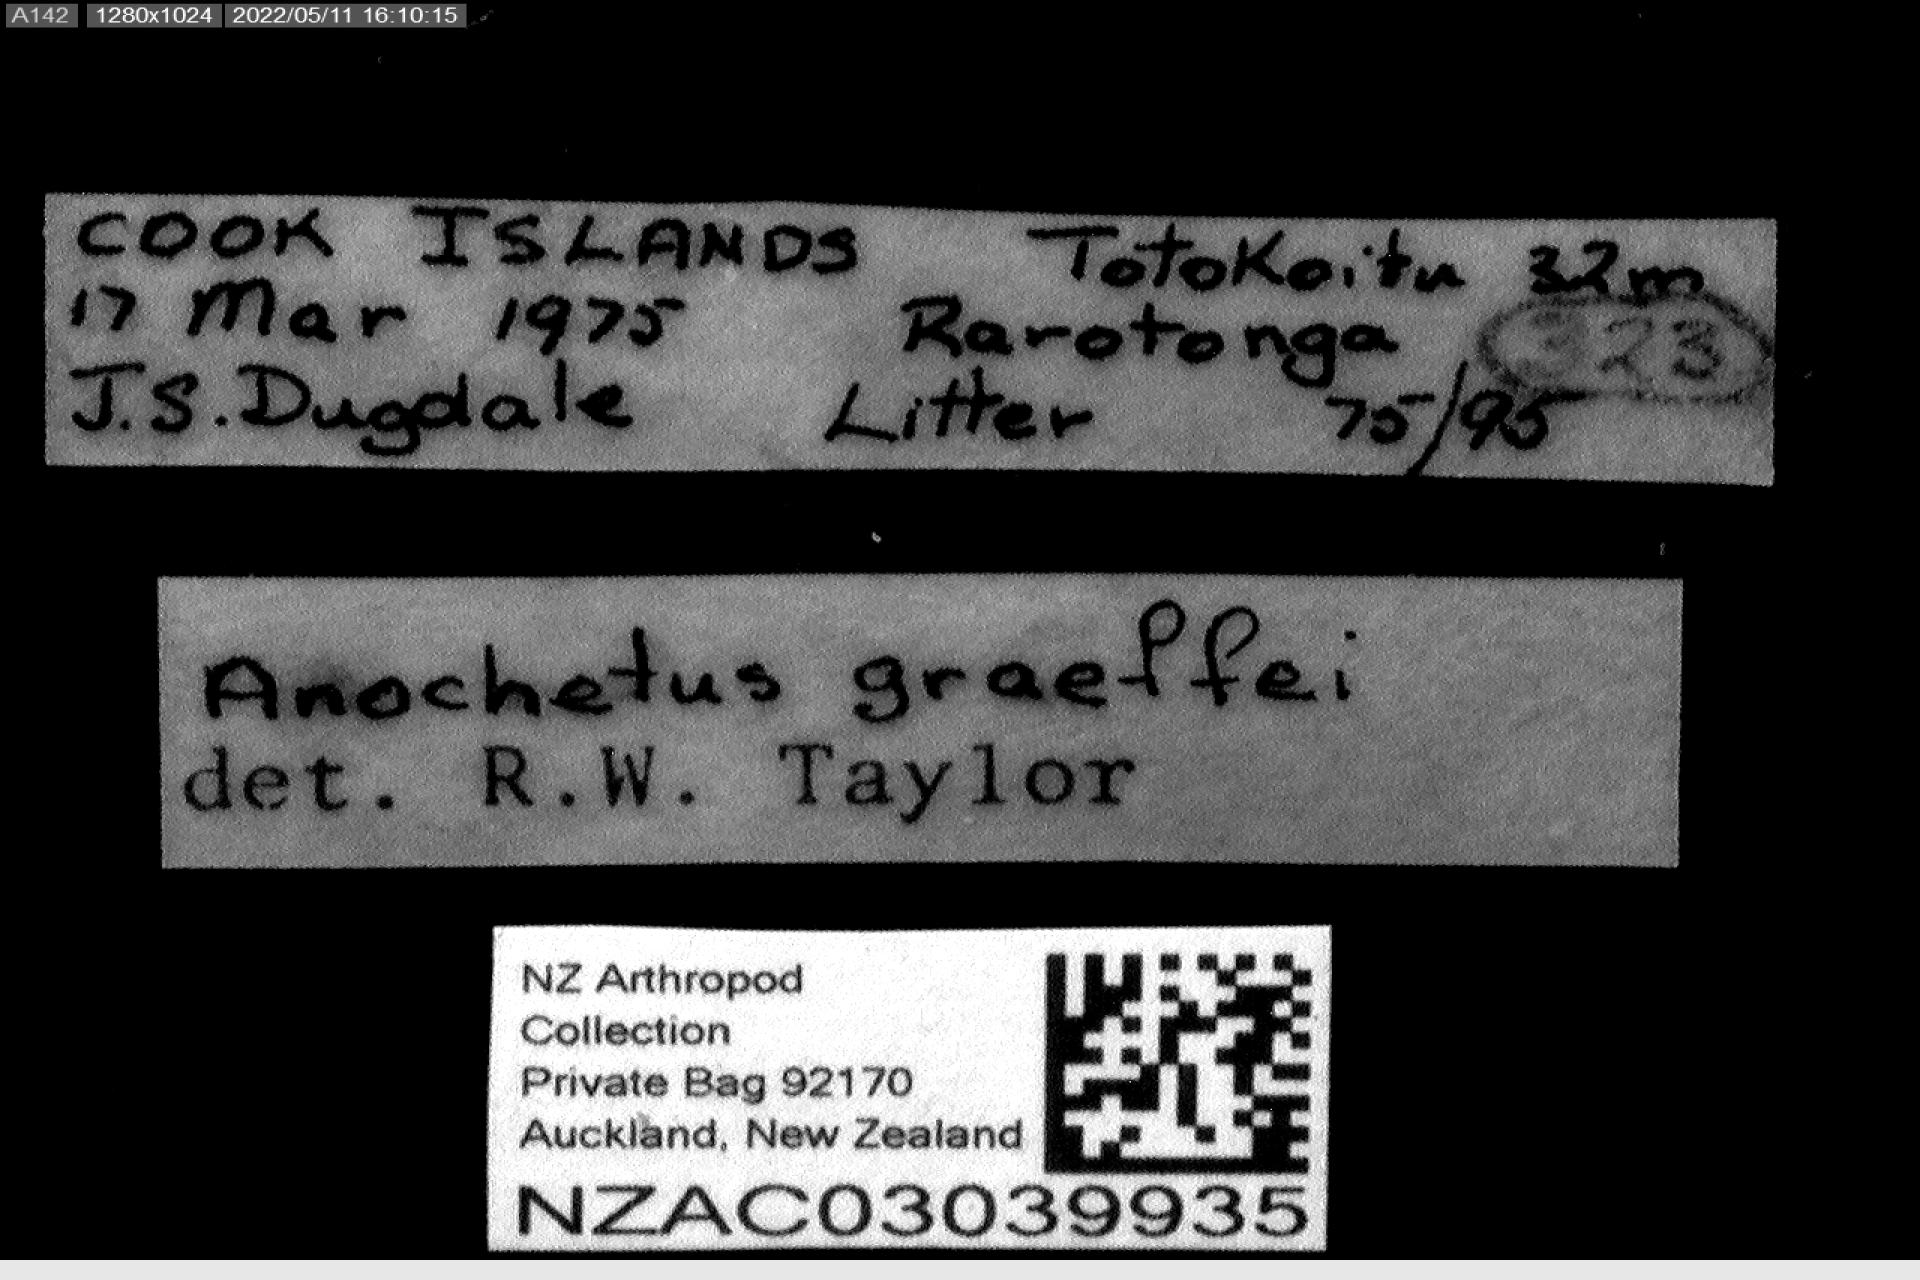 A142 1280x1024 2022/05/11 16:10:15
COOK ISLANDS Totokoitu 32m
17 Mar 1975 Rarotonga 323
J.S. Dugdale Litter 75/95
Anochetus graeffei
det. R.W. Taylor
NZ Arthropod
Collection
Private Bag 92170
Auckland, New Zealand
NZAC03039935